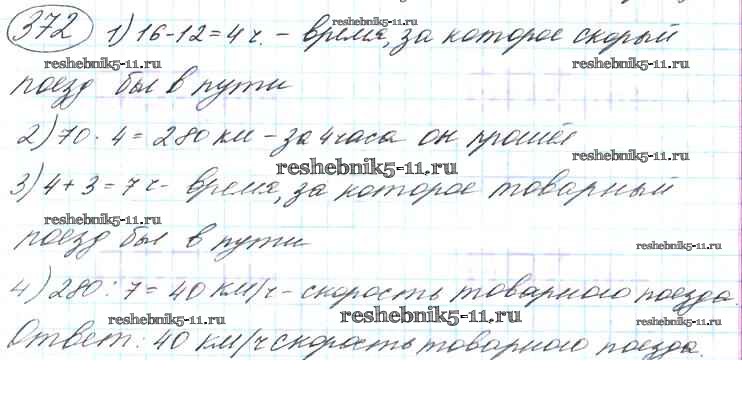 372 1) 16-12=4 ч. - время, за которое скорый
reshebnik5-11.ru
reshebnik5-11.ru
поезд был в пути
2) 70 · 4 = 280 км - за 4 часа он прошёл
reshebnik5-11.ru
reshebnik5-11.ru
3) 4+3=7 ч - время, за которое товарный
reshebnik5-11.ru
поезд был в пути
reshebnik5-11.ru
4) 280 : 7 = 40 км/ч - скорость товарного поезда.
reshebnik5-11.ru
reshebnik5-11.ru
reshebnik5-11.ru
Ответ: 40 км/ч скорость товарного поезда.